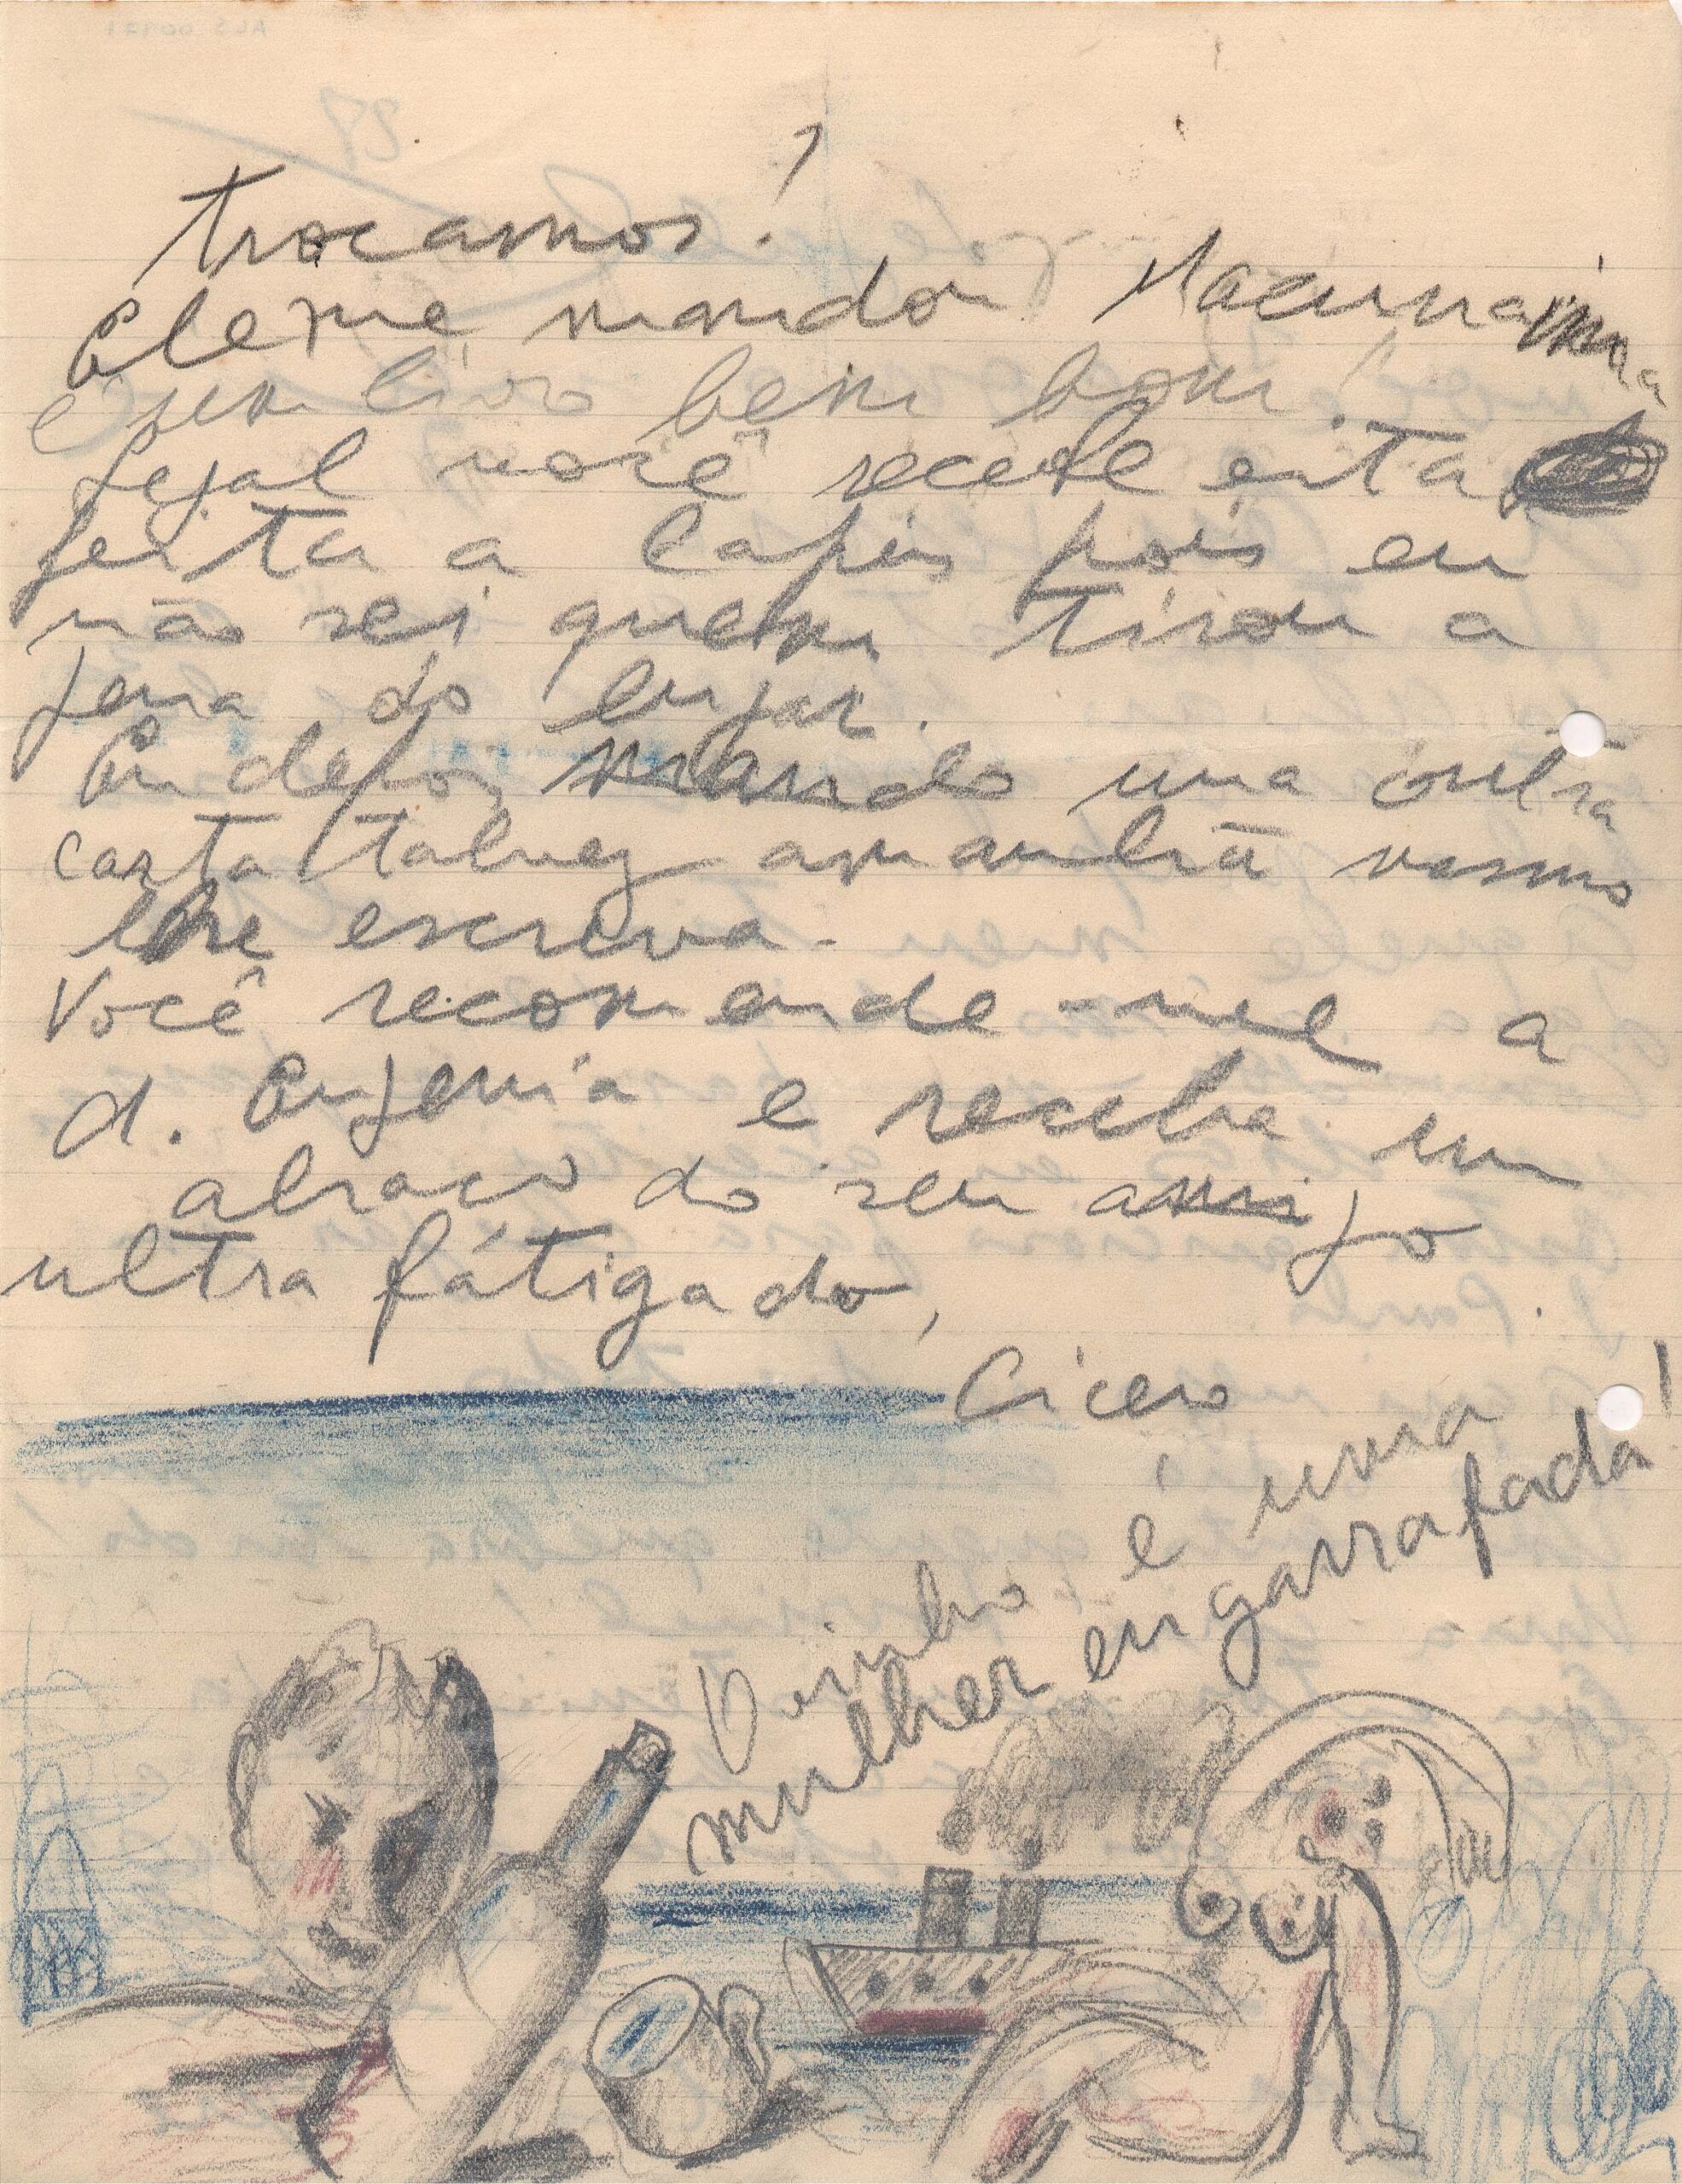 trocamos!
Ele me mandou Macunaíma
é um livro bem bom!
Legal você recebe esta
feita a lapis pois eu
não sei quem tirou a
pena do lugar.
Eu depois mando uma outra
carta talvez amanhã mesmo
lhe escreva.
Você recomende-me a
d. Eugenia e receba um
abraço do seu amigo
ultra fátigado,
Cicero
O vinho é uma
mulher engarrafada!